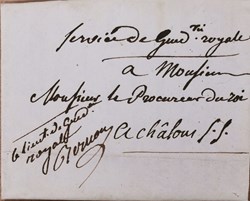 Service de Gend.rie royale
a Monsieur
Monsieur le Procureur du roi
a châlons s. s.
le lieut. de Gend.
royale